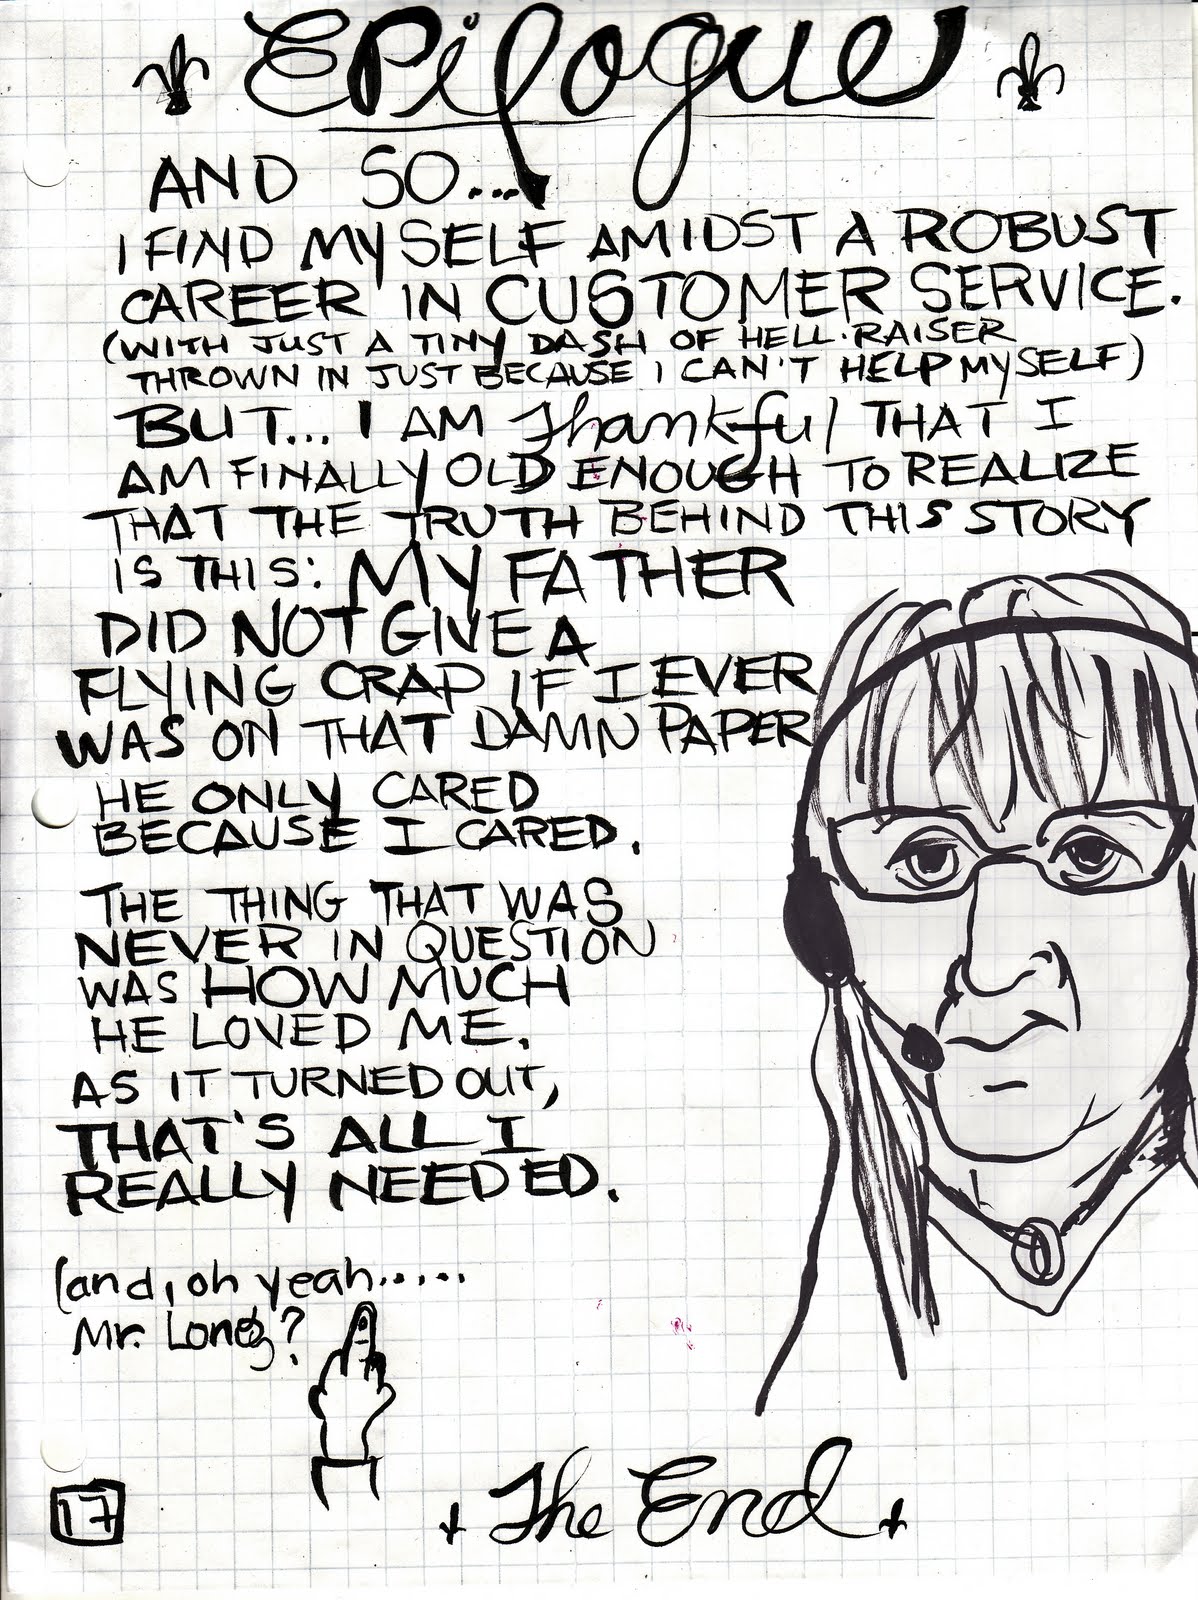 Epilogue
AND SO...
I FIND MYSELF AMIDST A ROBUST
CAREER IN CUSTOMER SERVICE.
(WITH JUST A TINY DASH OF HELL-RAISER
THROWN IN JUST BECAUSE I CAN'T HELP MYSELF)
BUT... I AM Thankful THAT I
AM FINALLY OLD ENOUGH TO REALIZE
THAT THE TRUTH BEHIND THIS STORY
IS THIS: MY FATHER
DID NOT GIVE A
FLYING CRAP IF I EVER
WAS ON THAT DAMN PAPER
HE ONLY CARED
BECAUSE I CARED.
THE THING THAT WAS
NEVER IN QUESTION
WAS HOW MUCH
HE LOVED ME.
AS IT TURNED OUT,
THAT'S ALL I
REALLY NEEDED.
(and, oh yeah.....
Mr. Long?
17
The End